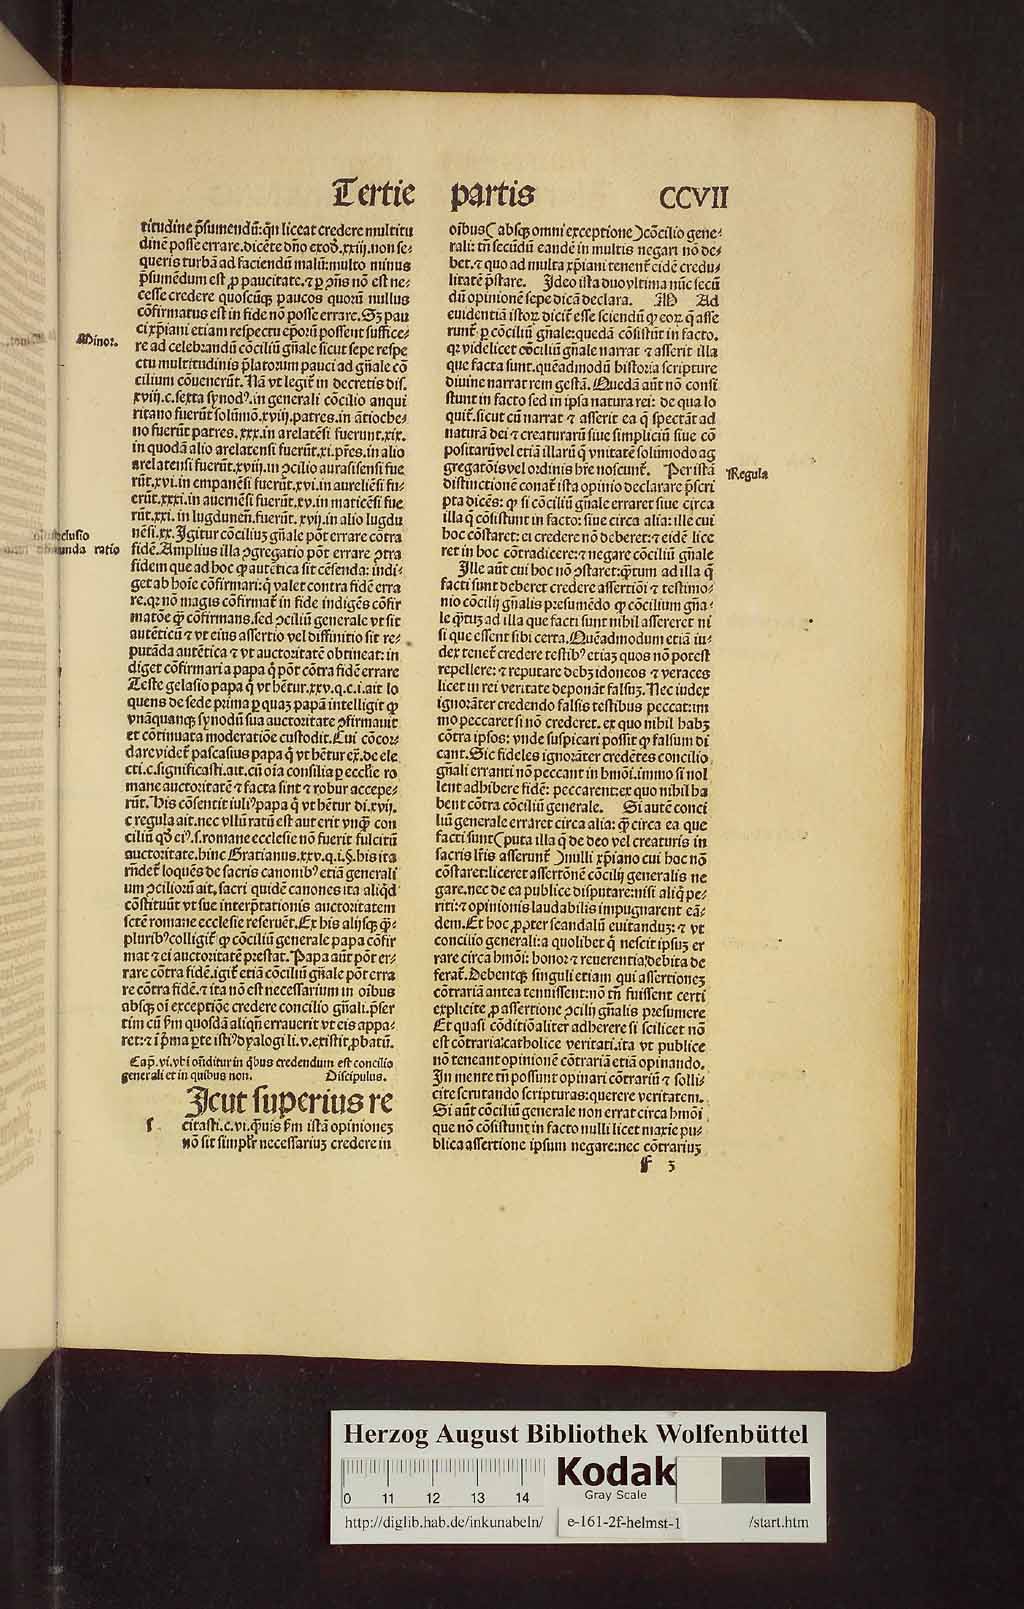 Tertie partis CCVII
titudine p̃sumendũ: qñ liceat credere multitu
dinẽ posse errare. dicẽte dño exod̃. xxiij. non se-
queris turbã ad faciendũ malũ: multo minus
p̃sumẽdum est, ꝓ paucitate. ⁊ ꝑ ꝯñs nõ est ne-
cesse credere quoscũqꝫ paucos quorũ nullus
cõfirmatus est in fide nõ posse errare. Sꝫ pau
ci xp̃iani etiam respectu ep̃orũ possent suffice-
re ad celebrandũ cõciliũ gñale sicut sepe respe
ctu multitudinis p̃latorum pauci ad gñale cõ
cilium cõuenerũt. Nã vt legit̃ in decretis dis.
xviij. c. sexta synodꝰ. in generali cõcilio anqui
ritano fuerũt solũmõ. xviij. patres. in ãtioche-
no fuerũt patres. xxx. in arelatẽsi fuerunt. xix.
in quodã alio arelatensi fuerũt. xi. pr̃es. in alio
arelatensi fuerũt. xviij. in ꝯcilio aurasisensi fue
rũt. xvi. in empanẽsi fuerũt. xvi. in aureliẽsi fu-
erũt. xxxi. in auernẽsi fuerũt. xv. in maticẽsi fue
rũt. xxi. in lugdunẽñ. fuerũt. xvij. in alio lugdu
nẽsi. xx. Igitur cõciliuꝫ gñale põt errare cõtra
fidẽ. Amplius illa ꝯgregatio põt errare ꝯtra
fidem que ad hoc ꝙ autẽtica sit cẽsenda: indi-
get ab hoĩe cõfirmari: q̃ valet contra fidẽ erra
re. qꝛ nõ magis cõfirmat̃ in fide indigẽs cõfir
matõe q̃ꝫ cõfirmans. sed ꝯciliũ generale vt sit
autẽticũ ⁊ vt eius assertio vel diffinitio sit re-
putãda autẽtica ⁊ vt auctoritatẽ obtineat: in
diget cõfirmari a papa q̃ põt cõtra fidẽ errare
Teste gelasio papa q̃ vt hẽtur. xxv. q. c. i. ait lo
quens de sede prima ꝑ quaꝫ papã intelligit ꝙ
vnãquanqꝫ synodũ sua auctoritate ꝯfirmauit
et cõtinuata moderatiõe custodit. Cui cõcor-
dare videt̃ pascasius papa q̃ vt hẽtur ex̃. de ele
cti. c. significasti. ait. cũ oĩa consilia ꝑ eccl̃ie ro
mane auctoritatẽ ⁊ facta sint ⁊ robur accepe-
rũt. His cõsentit iuliꝰ papa q̃ vt hẽtur di. xvij.
c regula ait. nec vllũ ratũ est aut erit vnq̃ꝫ con
ciliũ qd̃ eiꝰ. s. romane ecclesie nõ fuerit fulcitũ
auctoritate. hinc Gratianus. xxv. q. i. §. his ita
rñdet̃ loquẽs de sacris canonibꝰ etiã generali
um ꝯciliorũ ait. sacri quidẽ canones ita aliq̃d
cõstituũt vt sue interp̃tationis auctoritatem
sctẽ romane ecclesie reseruẽt. Ex his alijsqꝫ q̃ꝫ-
pluribꝰ colligit̃ ꝙ cõciliũ generale papa cõfir
mat ⁊ ei auctoritatẽ prestat. Papa aũt põt er-
rare cõtra fidẽ. igit̃ etiã cõciliũ gñale põt erra
re cõtra fidẽ. ⁊ ita nõ est necessarium in oĩbus
absqꝫ oĩ exceptiõe credere concilio gñali. p̃ser
tim cũ s̃m quosdã aliqñ errauerit vt eis appa-
ret: ⁊ ĩ p̃ma ꝑte istiꝰ dyalogi li. v. existit ꝓbatũ.
Cap̃. vi. vbi oñditur in q̃bus credendum est concilio
generali et in quibus non. Discipulus.
Icut superius re
s citasti. c. vi. q̃ꝫuis s̃m istã opinioneꝫ
nõ sit simpl̃r necessariuꝫ credere in
Minor.
clusio
unda ratio
oĩbus (absqꝫ omni exceptione) cõcilio gene-
rali: tñ secũdũ eandẽ in multis negari nõ de-
bet. ⁊ quo ad multa xp̃iani tenent̃ eidẽ credu-
litatẽ p̃stare. Ideo ista duo vltima nũc secũ
dũ opinionẽ sepe dicã declara. M Ad
euidentiã istoꝝ dicit̃ esse sciendũ ꝙ eoꝝ q̃ asse
runt̃ ꝑ cõciliũ gñale: quedã cõsistũt in facto.
qꝛ videlicet cõciliũ gñale narrat ⁊ asserit illa
que facta sunt. quẽadmodũ historia scripture
diuine narrat rem gestã. Quedã aũt nõ consi
stunt in facto sed in ipsa natura rei: de qua lo
quit̃. sicut cũ narrat ⁊ asserit ea q̃ spectãt ad
naturã dei ⁊ creaturarũ siue simpliciũ siue cõ
positarũ vel etiã illarũ q̃ vnitatẽ solũmodo ag
gregatõis vel ordinis h̃re noscunt̃. Per istã
distinctionẽ conat̃ ista opinio declarare p̃scri
pta dicẽs: ꝙ si cõciliũ gñale erraret siue circa
illa q̃ cõsistunt in facto: siue circa alia: ille cui
hoc cõstaret: ei credere nõ deberet: ⁊ eidẽ lice
ret in hoc cõtradicere: ⁊ negare cõciliũ gñale
Ille aũt cui hoc nõ ꝯstaret: q̃ꝫtum ad illa q̃
facti sunt deberet credere assertiõi ⁊ testimo-
nio cõcilij gñalis presumẽdo ꝙ cõcilium gña-
le q̃ꝫtuꝫ ad illa que facti sunt nihil assereret ni
si que essent sibi certa. Quẽadmodum etiã iu-
dex tenet̃ credere testibꝰ etiaꝫ quos nõ potest
repellere: ⁊ reputare debꝫ idoneos ⁊ veraces
licet in rei veritate deponãt falsuꝫ. Nec iudex
ignorãter credendo falsis testibus peccat: im
mo peccaret si nõ crederet. ex quo nihil habꝫ
cõtra ipsos: vnde suspicari possit ꝙ falsum di
cant. Sic fideles ignorãter credẽtes concilio
gñali erranti nõ peccant in hmõi. immo si nol
lent adhibere fidẽ: peccarent: ex quo nihil ha
bent cõtra cõciliũ generale. Si autẽ conci
liũ generale erraret circa alia: q̃ꝫ circa ea que
facti sunt (puta illa q̃ de deo vel creaturis in
sacris lr̃is asserunt̃) nulli xp̃iano cui hoc nõ
cõstaret: liceret assertõnẽ cõcilij generalis ne
gare. nec de ea publice disputare: nisi aliq̃ pe-
riti: ⁊ opinionis laudabilis impugnarent eã-
dem. Et hoc ꝓpter scandalũ euitanduꝫ: ⁊ vt
concilio generali: a quolibet q̃ nescit ipsuꝫ er
rare circa hmõi: honor ⁊ reuerentia: debita de
ferat̃. Debentqꝫ singuli etiam qui assertioneꝫ
cõtrariã antea tenuissent: nõ tñ fuissent certi
explicite ꝓ assertione ꝯcilij gñalis presumere
Et quasi cõditiõaliter adherere si scilicet nõ
est cõtraria: catholice veritati. ita vt publice
nõ teneant opinionẽ cõtrariã etiã opinando.
In mente tñ possunt opinari cõtrariũ ⁊ solli-
cite scrutando scripturas: querere veritatem.
Si aũt cõciliũ generale non errat circa hmõi
que nõ cõsistunt in facto nulli licet maxie pu-
blica assertione ipsum negare: nec cõtrariuꝫ
Regula
f 3
Herzog August Bibliothek Wolfenbüttel
0 11 12 13 14
Kodak
Gray Scale
http://diglib.hab.de/inkunabeln/ e-161-2f-helmst-1 /start.htm